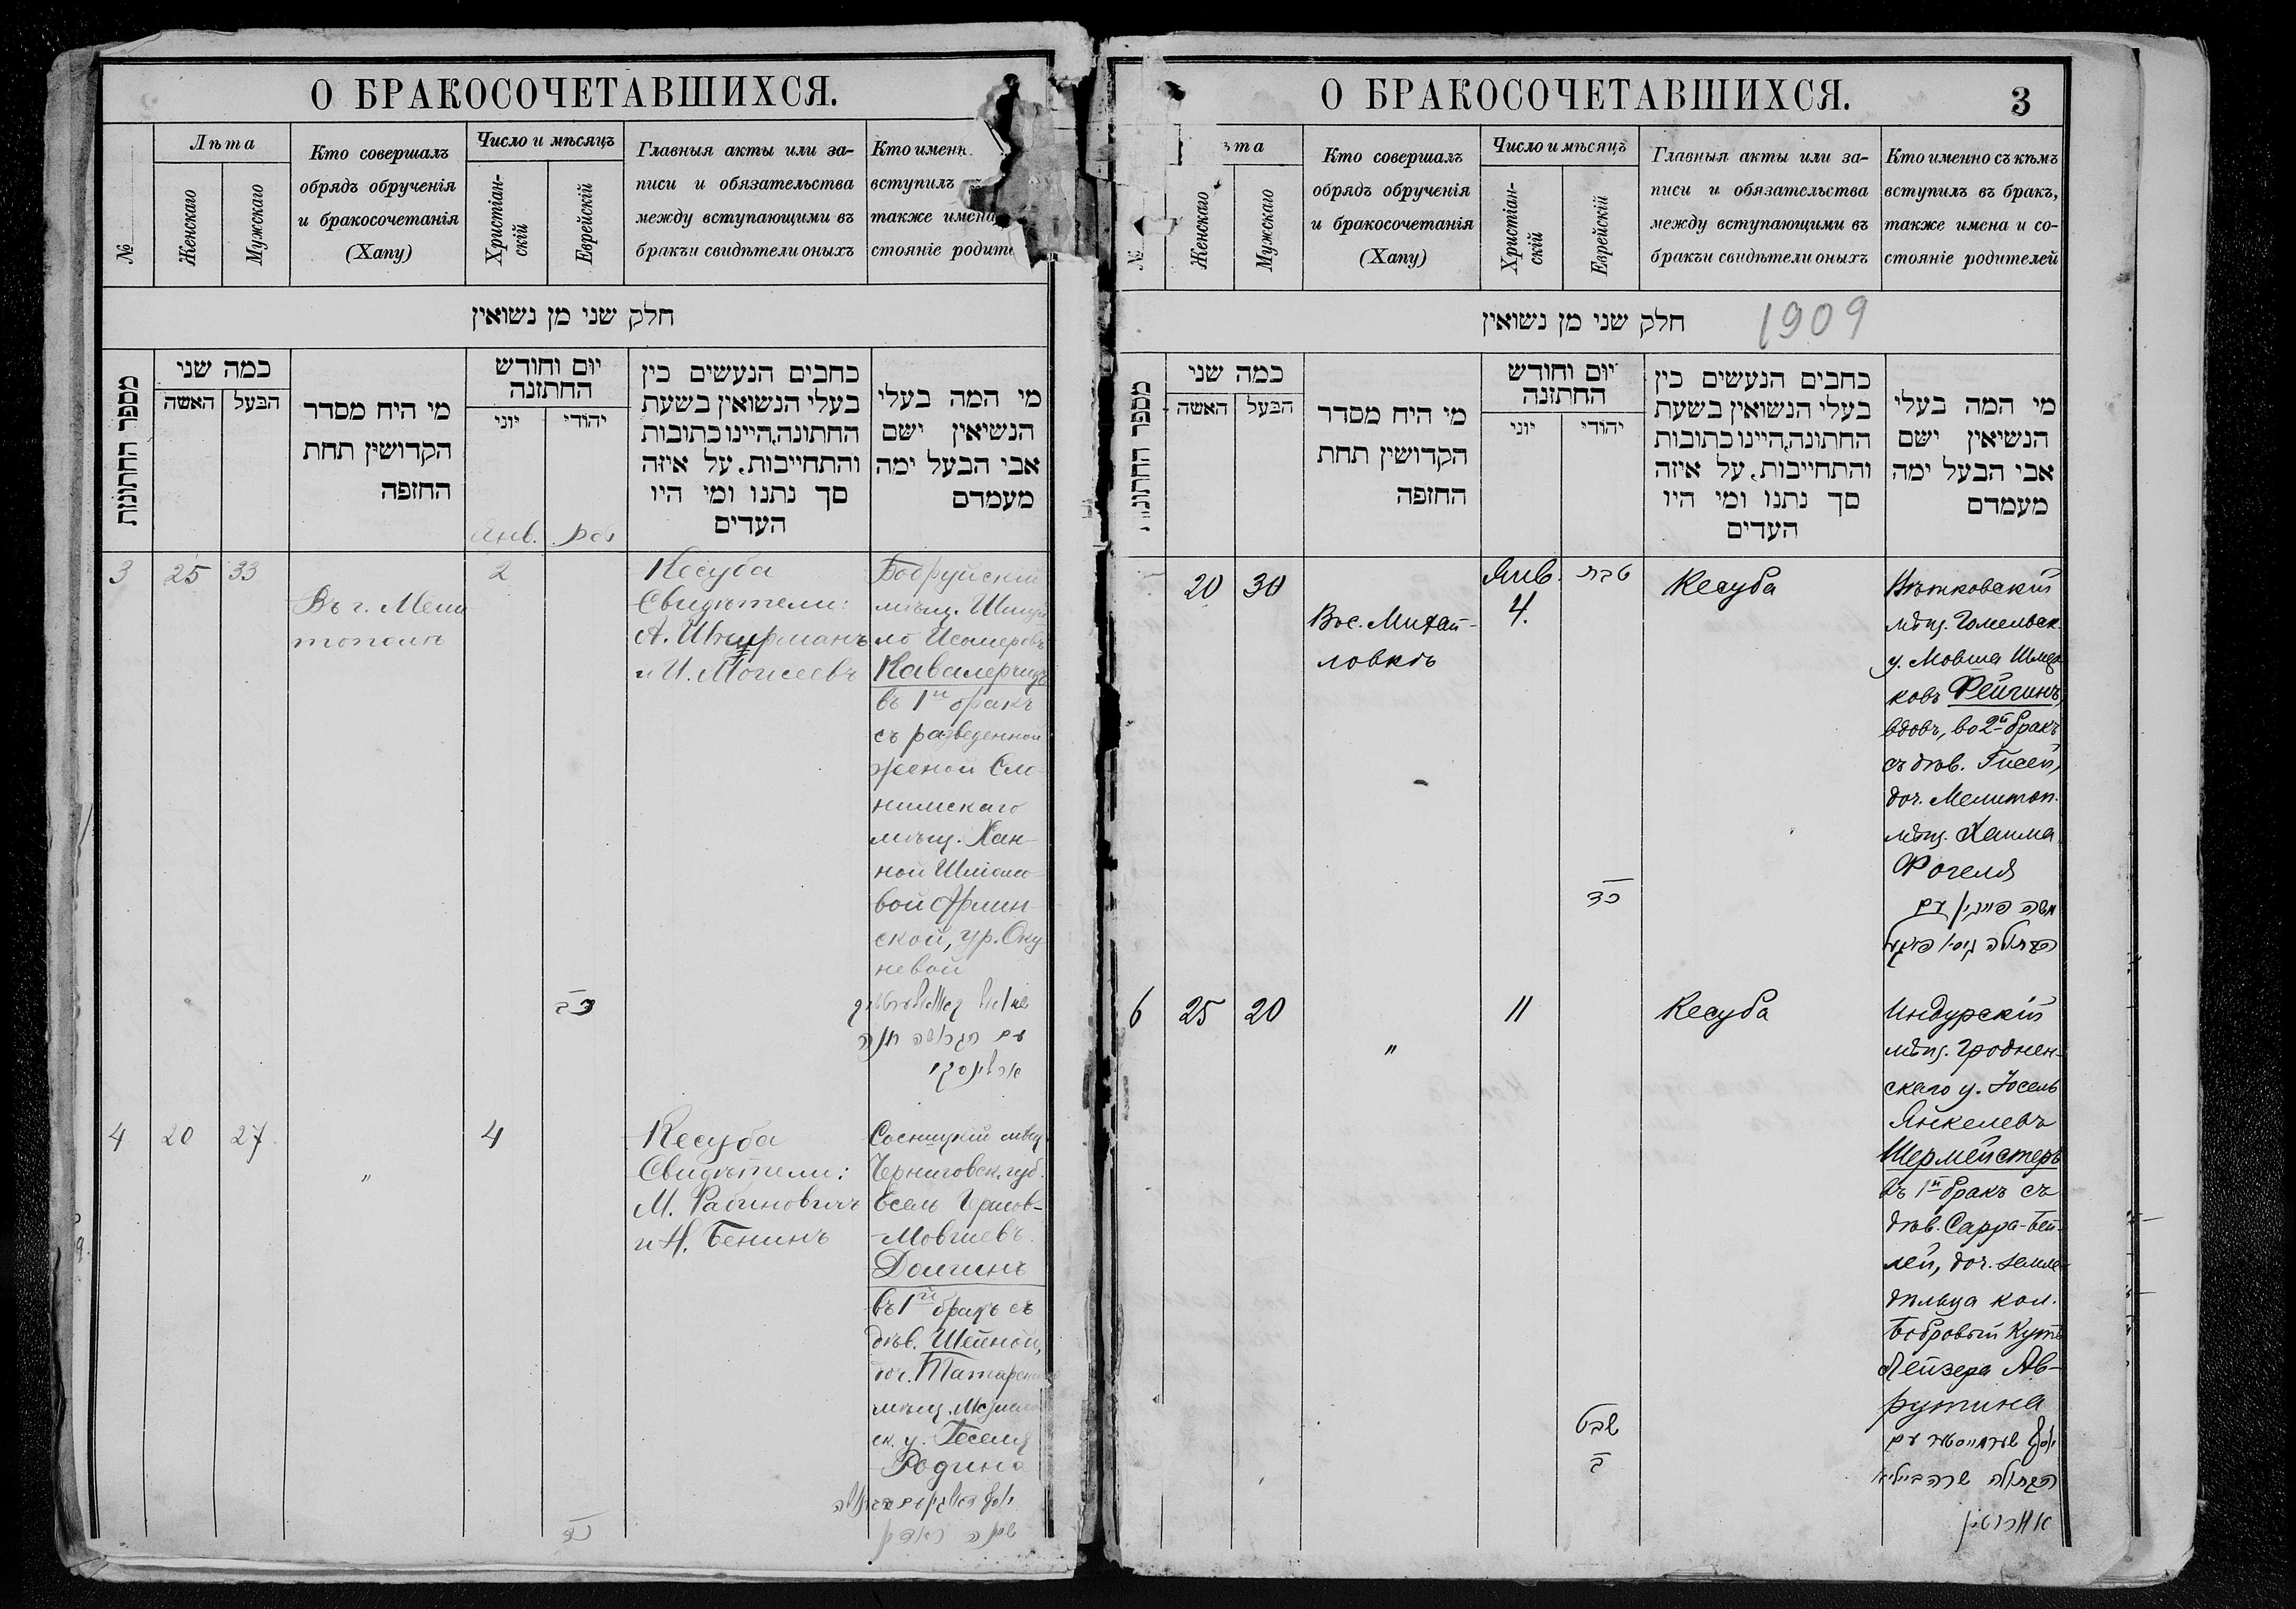 О БРАКОСОЧЕТАВШИХСЯ.
№
Лѣта
Женскаго
Мужскаго
Кто совершалъ
обрядъ обрученія
и бракосочетанія
(Хапу)
Число и мѣсяцъ
Христіан-
скій
Еврейскій
Главныя акты или за-
писи и обязательства
между вступающими въ
бракъ и свидѣтели оныхъ
Кто именн
вступилъ
также имена
стояніе родите
חלק שני מן נשואין
מספר החתונות
כמה שני
האשה
הבעל
מי היח מסדר
הקדושין תחת
החופה
יום וחודש
החתונה
יוני
יהודי
Янв.
כחבים הנעשים כין
בעלי הנשואין בשעת
החתונה, היינו כתובות
והתחייבות, על איזה
סך נתנו ומי היו
העדים
מי המה בעלי
הנשיאין ישם
אבי הבעל ימה
מעמדם
3
25
33
Въ г. Мели
тополѣ
2
Кесуба
Свидѣтели:
А. Штурманъ
и И. Моисеевъ
Бобруйскій
мѣщ. Шмуй
ло Исомеровъ
Кавалерчикъ
въ 1й бракъ
съ разведенной
женой Сло
нимскаго
мѣщ. Хан-
ной Шліомо-
вой Орлин-
ской, ур. Оку
невой
כב
עם הגרושה חנה
ארלינסקי
4
20
27
"
4
Кесуба
Свидѣтели:
М. Рабиновичъ
и Н. Бенинъ
Сосницкій мѣщ.
Черниговск. губ.
Есель Герсов-
Мовшевъ
Долгинъ
въ 1й бракъ съ
дѣв. Шейной,
доч. Татарска
мѣщ.
ск. у. Іоселя
Родина
כד
О БРАКОСОЧЕТАВШИХСЯ.
3
№
ѣта
Женскаго
Мужскаго
Кто совершалъ
обрядъ обрученія
и бракосочетанія
(Хапу)
Число и мѣсяцъ
Христіан-
скій
Еврейскій
Главныя акты или за-
писи и обязательства
между вступающими въ
бракъ и свидѣтели оныхъ
Кто именно съ кѣмъ
вступилъ въ бракъ,
также имена и со-
стояніе родителей
חלק שני מן נשואין
1909
מספר החתונות
כמה שני
האשה
הבעל
מי היח מסדר
הקדושין תחת
החופה
יום וחודש
החתונה
יוני
יהודי
כחבים הנעשים כין
בעלי הנשואין בשעת
החתונה, היינו כתובות
והתחייבות, על איזה
סך נתנו ומי היו
העדים
מי המה בעלי
הנשיאין ישם
אבי הבעל ימה
מעמדם
20
30
Въ с. Михай-
ловкѣ
Янв.
4.
טבת
Кесуба
Вѣтковскій
мѣщ. Гомельск.
у. Мовша Шмер
ковъ Фейгинъ,
вдовъ, во 2й бракъ
съ дѣв. Гисей,
доч. Мелитоп.
мѣщ. Хаима
Фогеля
כד
משה פייגין עם
הבתולה גיסי פאגעל
6
25
20
"
11
Кесуба
Индурскій
мѣщ. Гроднен-
скаго у. Іосель
Янкелевъ
Шермейстеръ
въ 1й бракъ съ
дѣв. Сарра-Бей-
лей, доч. земле-
дѣльца кол.
Бобровый Кутъ
Лейзера Ав-
рутина
שבט
ב
יוסף שערמייסטער עם
הבתולה שרה ביילא
אוורוטין